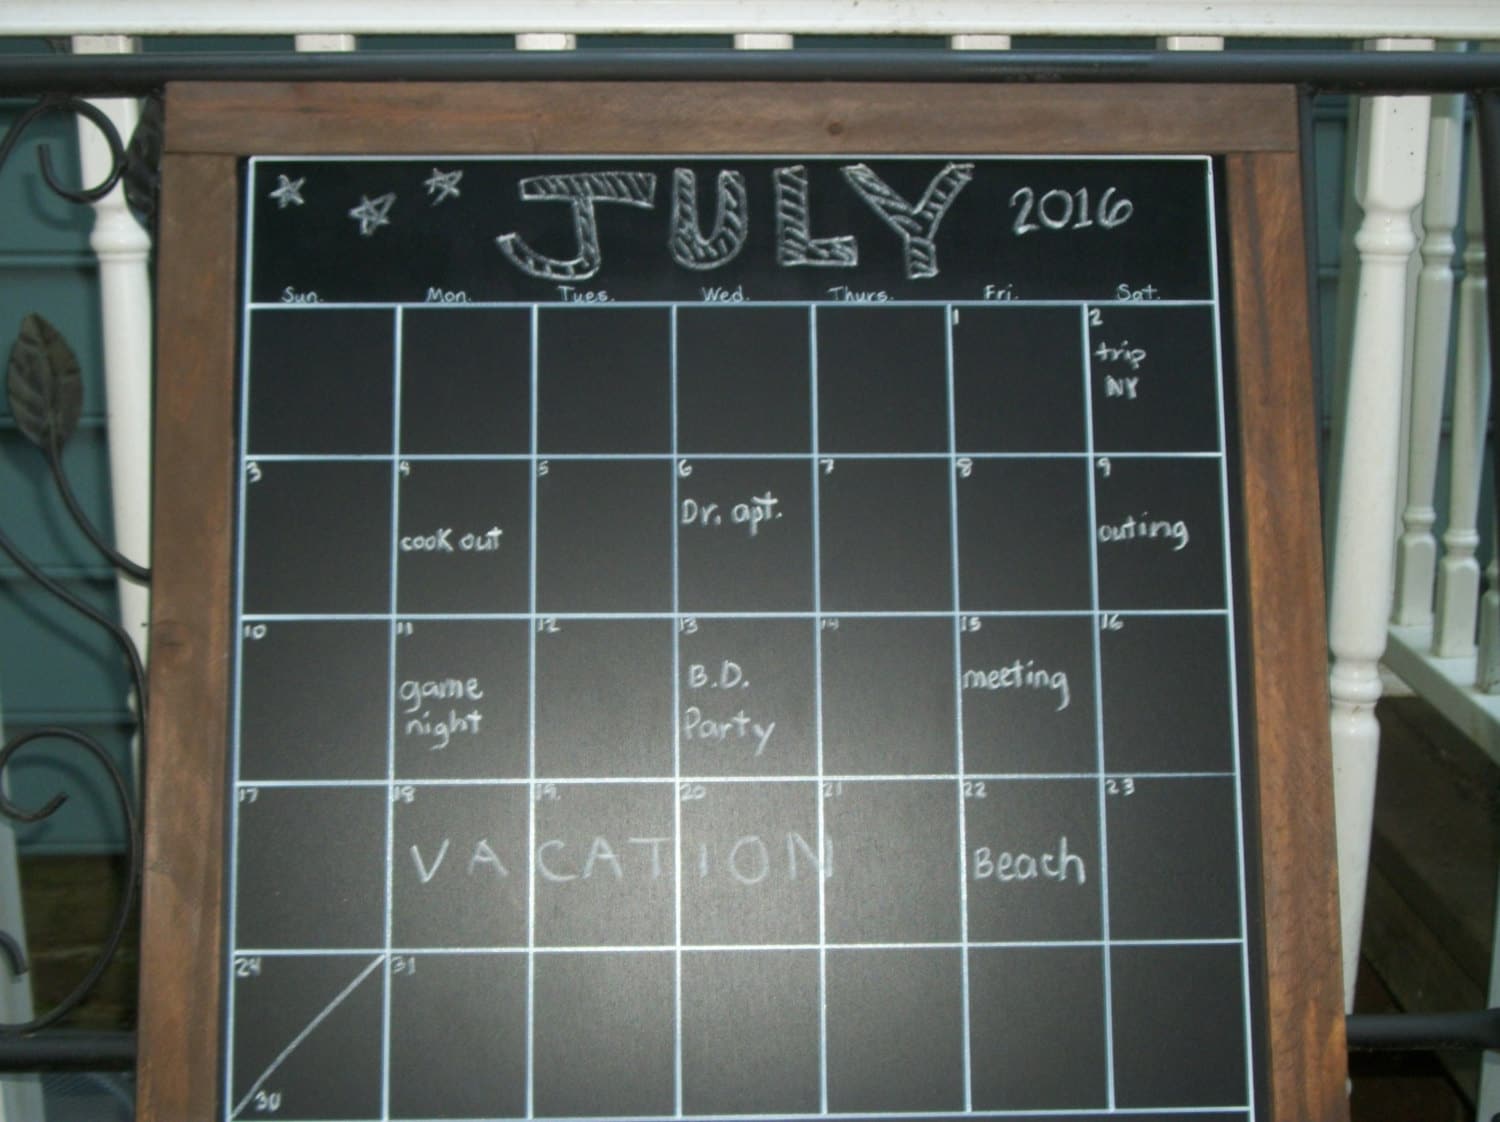 JULY 2016
Sun. Mon. Tues. Wed. Thurs. Fri. Sat.
1 2
trip
NY
3 4 5 6 7 8 9
cook out Dr. apt. outing
10 11 12 13 14 15 16
game B.D. meeting
night Party
17 18 19. 20 21 22 23
VACATION Beach
24 31
30